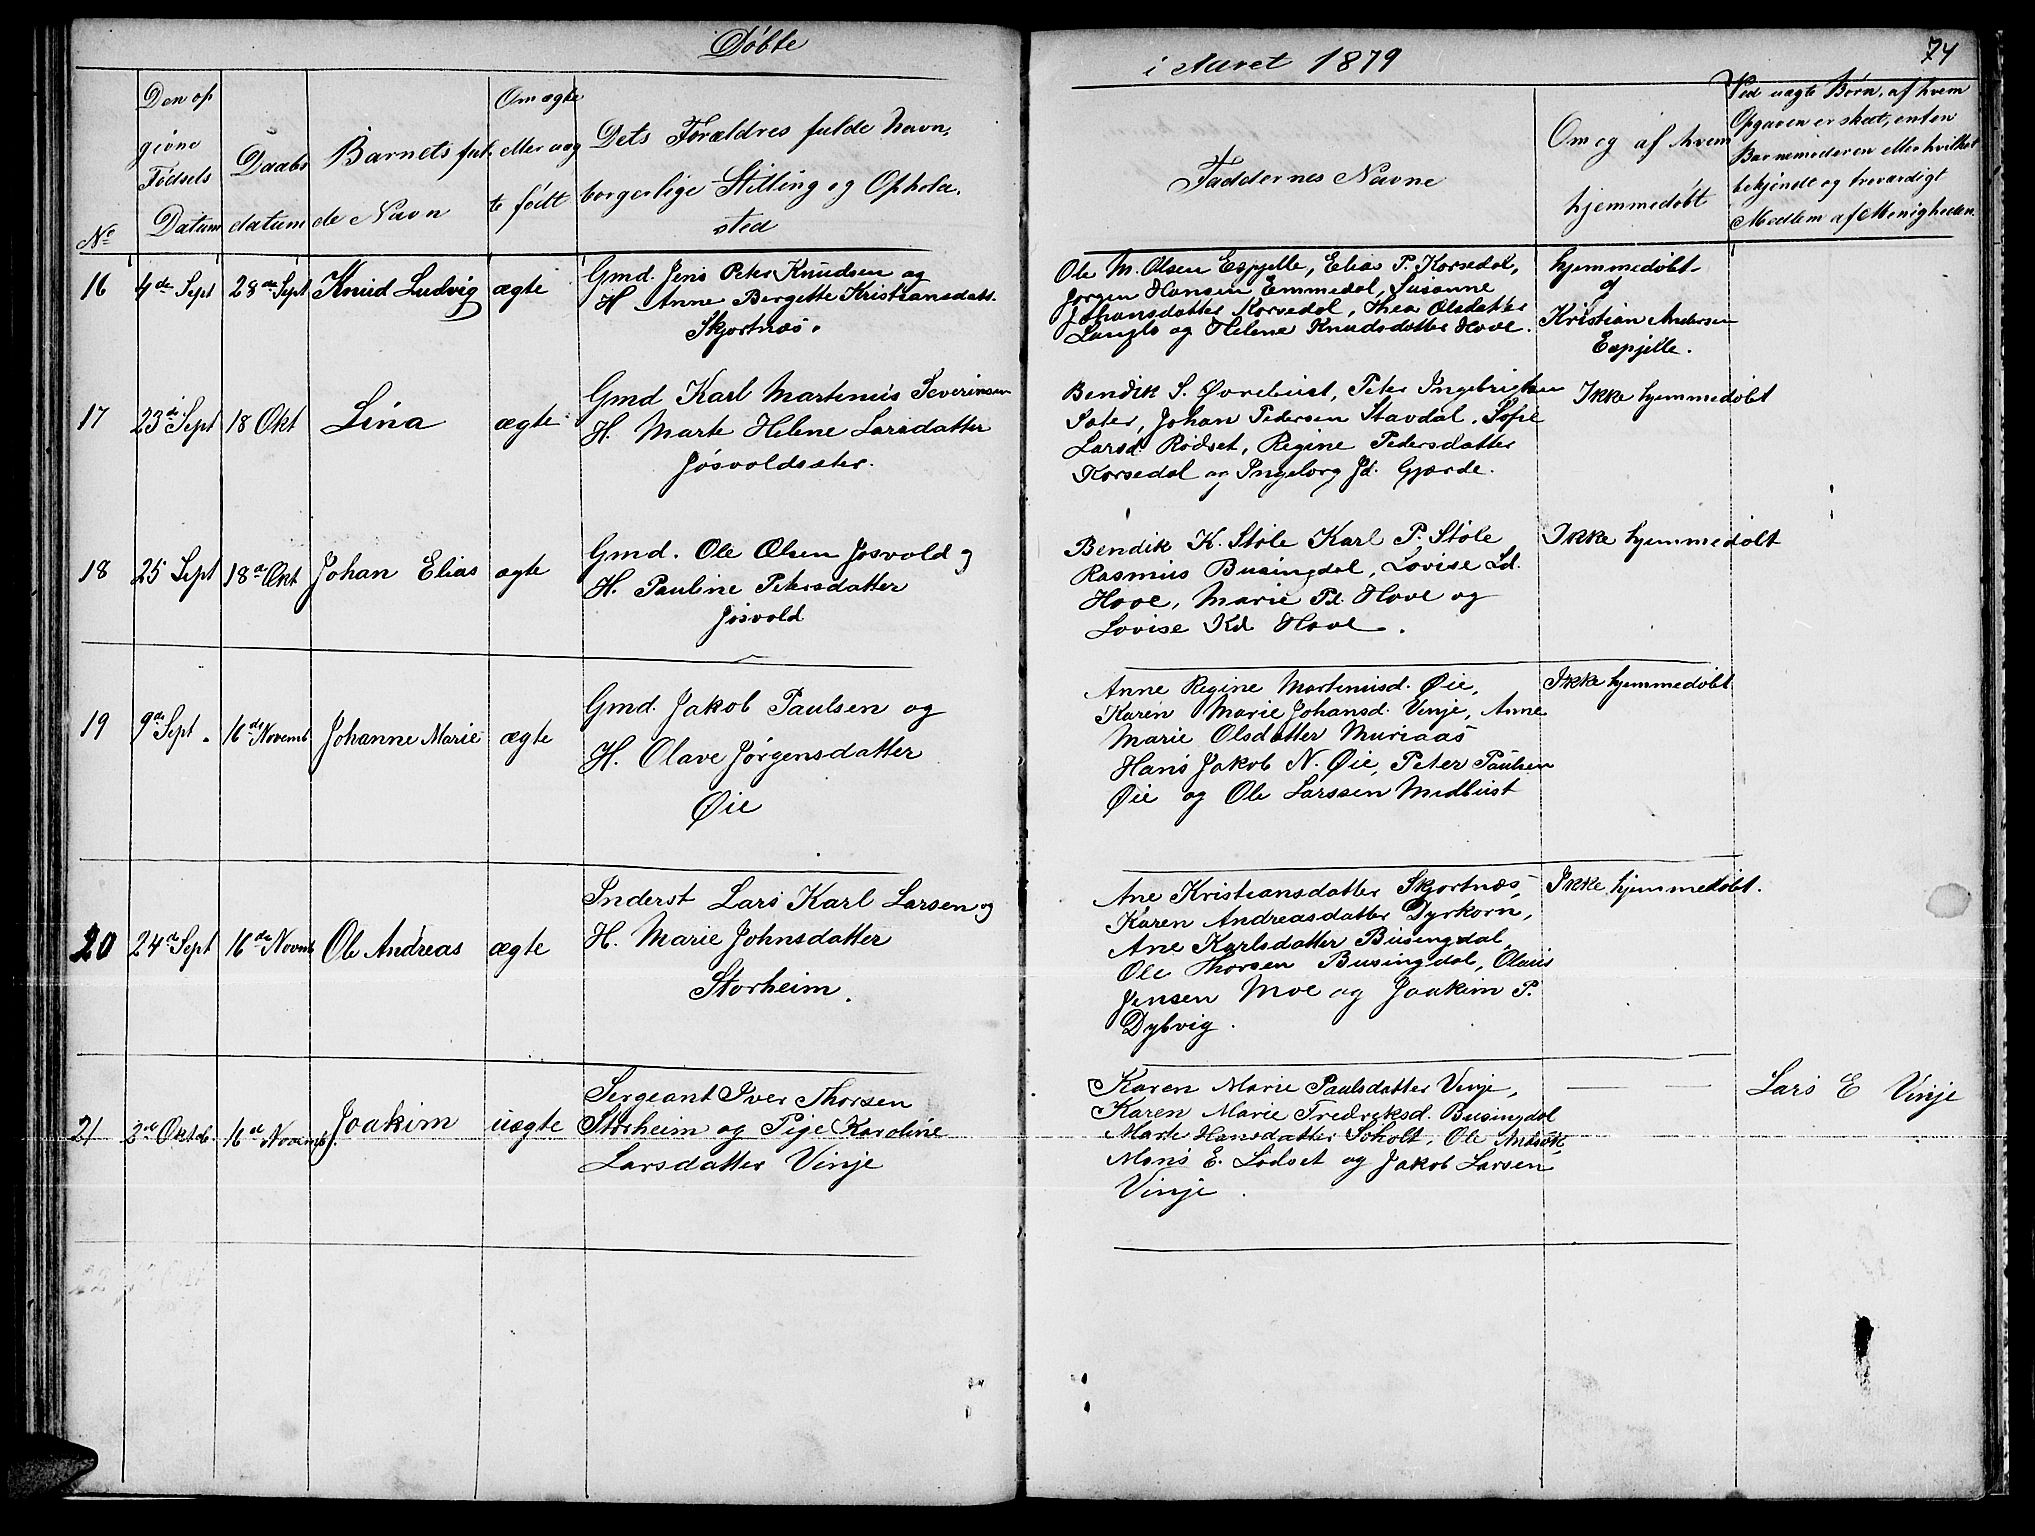 Døbte
i Aaret 1879
74
No
Den op
givne
Fødsels
Datum
Daabs
datum
Barnets ful
de Navn
Om ægte
eller uæg
te født
Dets Forældres fulde Navn,
borgerlige Stilling og Opholds
sted
Faddernes Navne
Om og af hvem
hjemmedøbt
Ved uægte Børn, af hvem
Opgaven er skeet, enten
Barnemoderen eller hvilket
bekjendt og troværdigt
Medlem af Menigheden.
16 4de Sept 28de Sept Knud Ludvig ægte
Gmd. Jens Peter Knudsen og
H. Anne Bergette Kristiansdatt.
Skjortnæs.
Ole M. Olsen Espjelle, Elias P. Korsedal,
Jørgen Hansen Emmedal, Susanne
Johansdatter Korsedal, Thea Olsdatter
Langlo og Helene Knudsdatter Hove.
hjemmedøbt
af
Kristian Andersen
Espjelle.
17 23de Sept 18 Okt Lina ægte
Gmd Karl Martinus Severinsen
H. Marte Helene Larsdatter
Jøsvoldsæter.
Bendik S. Øvrebust, Peter Ingebrigtsen
Sæter, Johan Pedersen Stavdal, Sofie
Larsd. Rødset, Regine Pedersdatter
Korsedal og Ingeborg Jd. Gjærde.
Ikke hjemmedøbt
18 25 Sept 18de Okt Johan Elias ægte
Gmd. Ole Olsen Jøsvold og
H. Pauline Petersdatter
Jøsvold
Bendik K. Støle Karl P. Støle
Rasmus Busingdal, Lovise Ld.
Hove, Marie Pd. Hove og
Lovise Kd Hove.
Ikke hjemmedøbt
19 9de Sept. 16de Novemb Johanne Marie ægte
Gmd. Jakob Paulsen og
H. Olave Jørgensdatter
Øie
Anne Regine Martinusd. Øie,
Karen Marie Johansd. Vinje, Anne
Marie Olsdatter Muriaas
Hans Jakob N. Øie, Peter Paulsen
Øie og Ole Larssen Midbust
Ikke hjemmedøbt
20 24de Sept 16de Novmb Ole Andreas ægte
Inderst Lars Karl Larsen og
H. Marie Johnsdatter
Storheim.
Ane Kristiansdatter Skjortnæs,
Karen Andreasdatter Dyrkorn,
Ane Karlsdatter Busingdal,
Ole Thorsen Busingdal, Olaus
Jensen Moe og Joakim P.
Dybvig.
Ikke hjemmedøbt.
21 2de Oktob. 16de Novemb. Joakim uægte
Sergeant Iver Thorsen
Storheim og Pige Karoline
Larsdatter Vinje
Karen Marie Paulsdatter Vinje,
Karen Marie Fredriksd. Busingdal
Marte Hansdatter Søholt, Ole
Mons E. Lødset og Jakob Larsen
Vinje.
Lars E Vinje